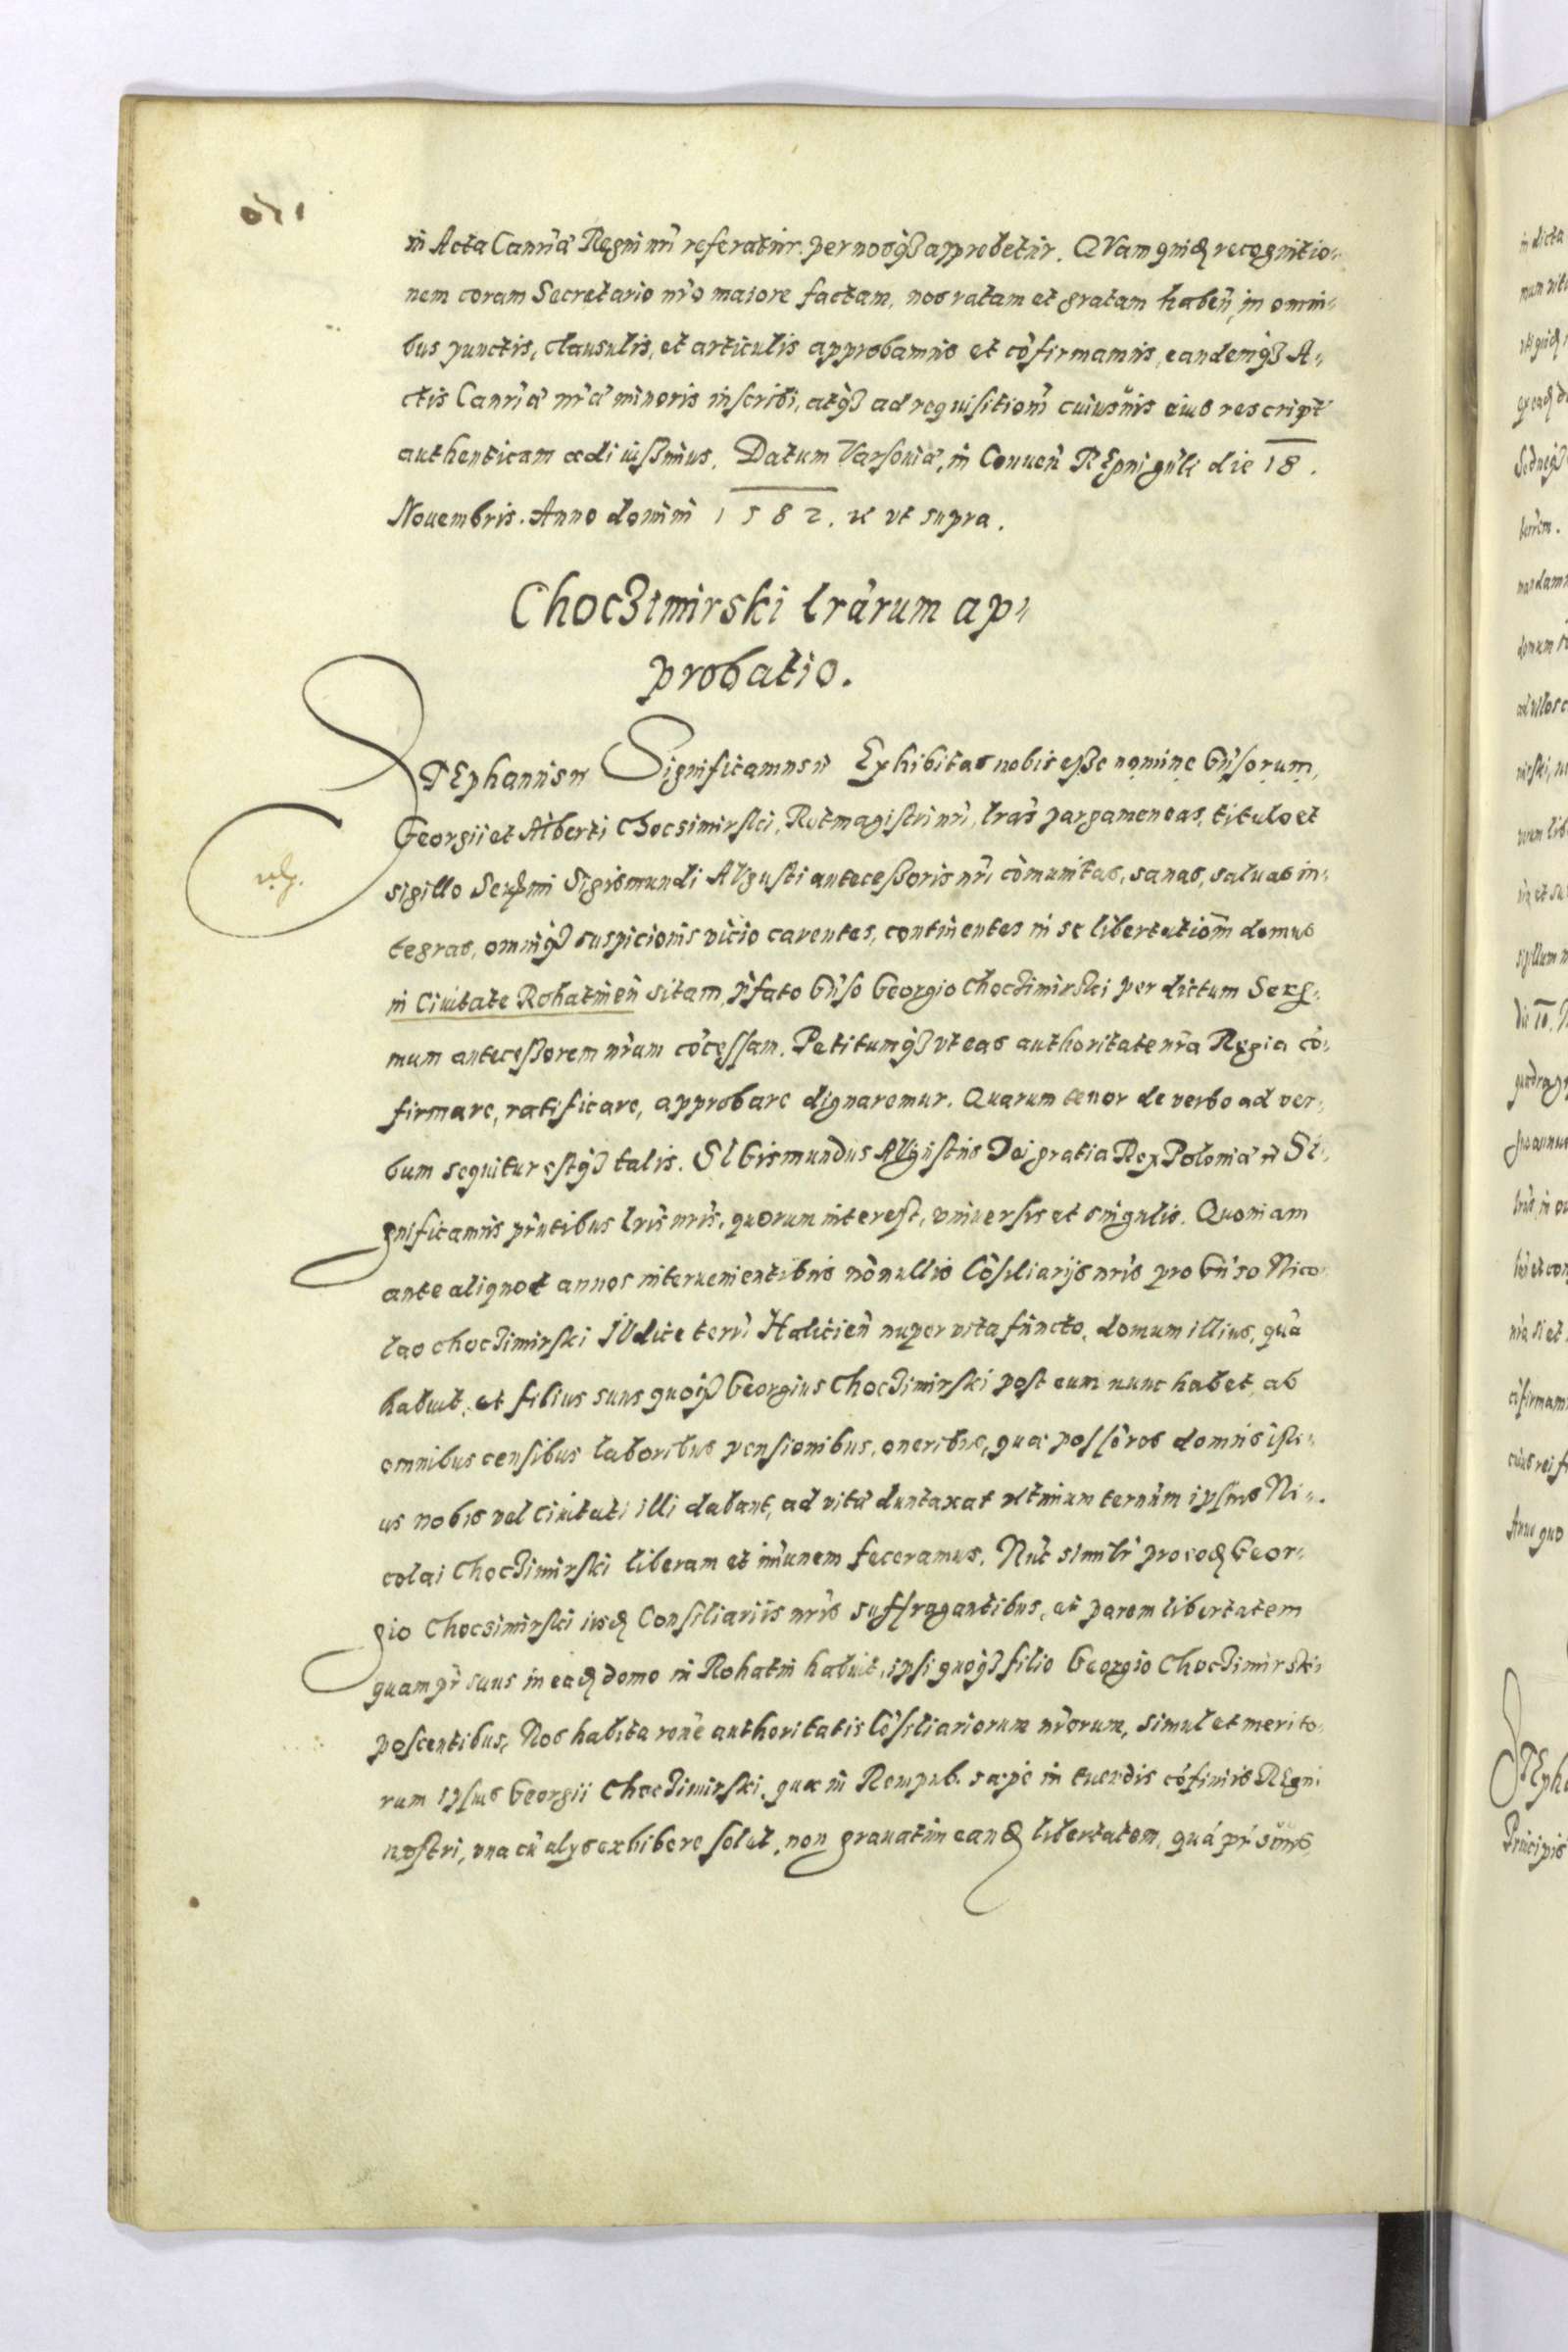 in Acta Canrÿæ Regni nri referatur. per nosq3 approbetur. QVam quid recognitio-
nem coram Secretario nro maiore factam, nos ratam et gratam haben, in omni-
bus punctis, clausulis, et articulis approbamus et cõfirmamus, eandemq3 A-
ctis Canriæ nræ minoris inscribi, atq3 ad requisitionẽ cuiusuis eius rescript
authenticam ædi iussimus. Datum Varsouiæ, in Conuen REgni gnli die 18.
Nouembris. Anno domini 1582. R vt supra.
Choc3imirski lrarum ap-
probatio.
STEphanus rc Significamus rc Exhibitas nobis esse nomine Gnsorum,
Georgii et Alberti Chocsimirski, Rotmagistri nri, lras pargameneas, titulo et
sigillo Serẽmi Sigismundi AVgusti antecessoris nri cõmunitas, sanas, saluas in-
tegras, omniq3 suspicionis vicio carentes, continentes in se libertationẽ domus
in Ciuitate Rohatinen sitam, pfato Gnso Georgio Choczimirski per dictum Sere-
mum antecessorem nrum cõcessam. Petitumq3 vt eas authoritate nra Regia cõ-
firmare, ratificare, approbare dignaremur. Quarum tenor de verbo ad ver-
bum sequitur estq3 talis. SIGismundus AVgustus Dei gratia Rex Poloniæ rc SI-
gnificamus prntibus lris nris, quorum interest, vniuersis et singulis. Quoniam
ante aliquot annos interuenientibus nõnullis Cõsiliarijs nris pro Gnso Nico
lao Choczimirski IVdice terr Halicien nuper vita functo, domum illius, quã
habuit, et filius suus quoq3 Georgius Choczimirski post eum nunc habet, ab
omnibus censibus laboribus pensionibus, oneribus, quæ possõres domus isti-
us nobis vel Ciuitati illi dabant, ad vitæ duntaxat vltimum ternum ipsius Ni-
colai Choczimirski liberam et imunem feceramus. Nũc simili pro eod Geor-
gio Chocsimirski iisd Consiliariis nris suffragantibus, et parem libertatem
quam pr suus in ead domo in Rohatin habuit, ipsi quoq3 filio Georgio Choczimirski
poscentibus, Nos habita rone authoritatis Cõsiliariorum nrorum, simul et merito-
rum ipsius Georgii Choczimirski, quæ in Rempub. sæpe in tuendis cõfiniis REgni
nostri, vna cũ alijs exhibere solet, non grauatim eand libertatem, quã pr suus